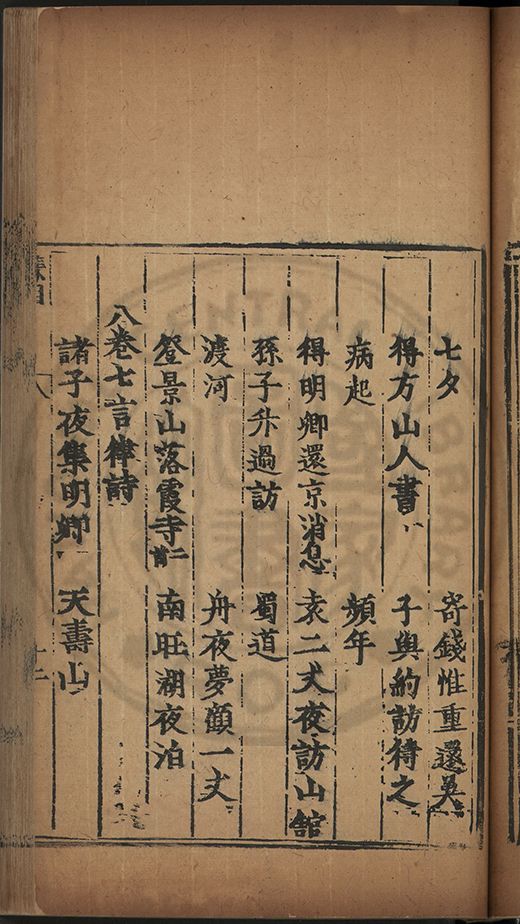 七夕 寄錢惟重還吳
得方山人書 子與約訪待之
病起 頻年
得明卿還京消息 袁二丈夜訪山館
孫子升過訪 蜀道
渡河 舟夜夢顧一丈
登景山落霞寺二首 南旺湖夜泊
八卷七言律詩
諸子夜集明卿 天壽山